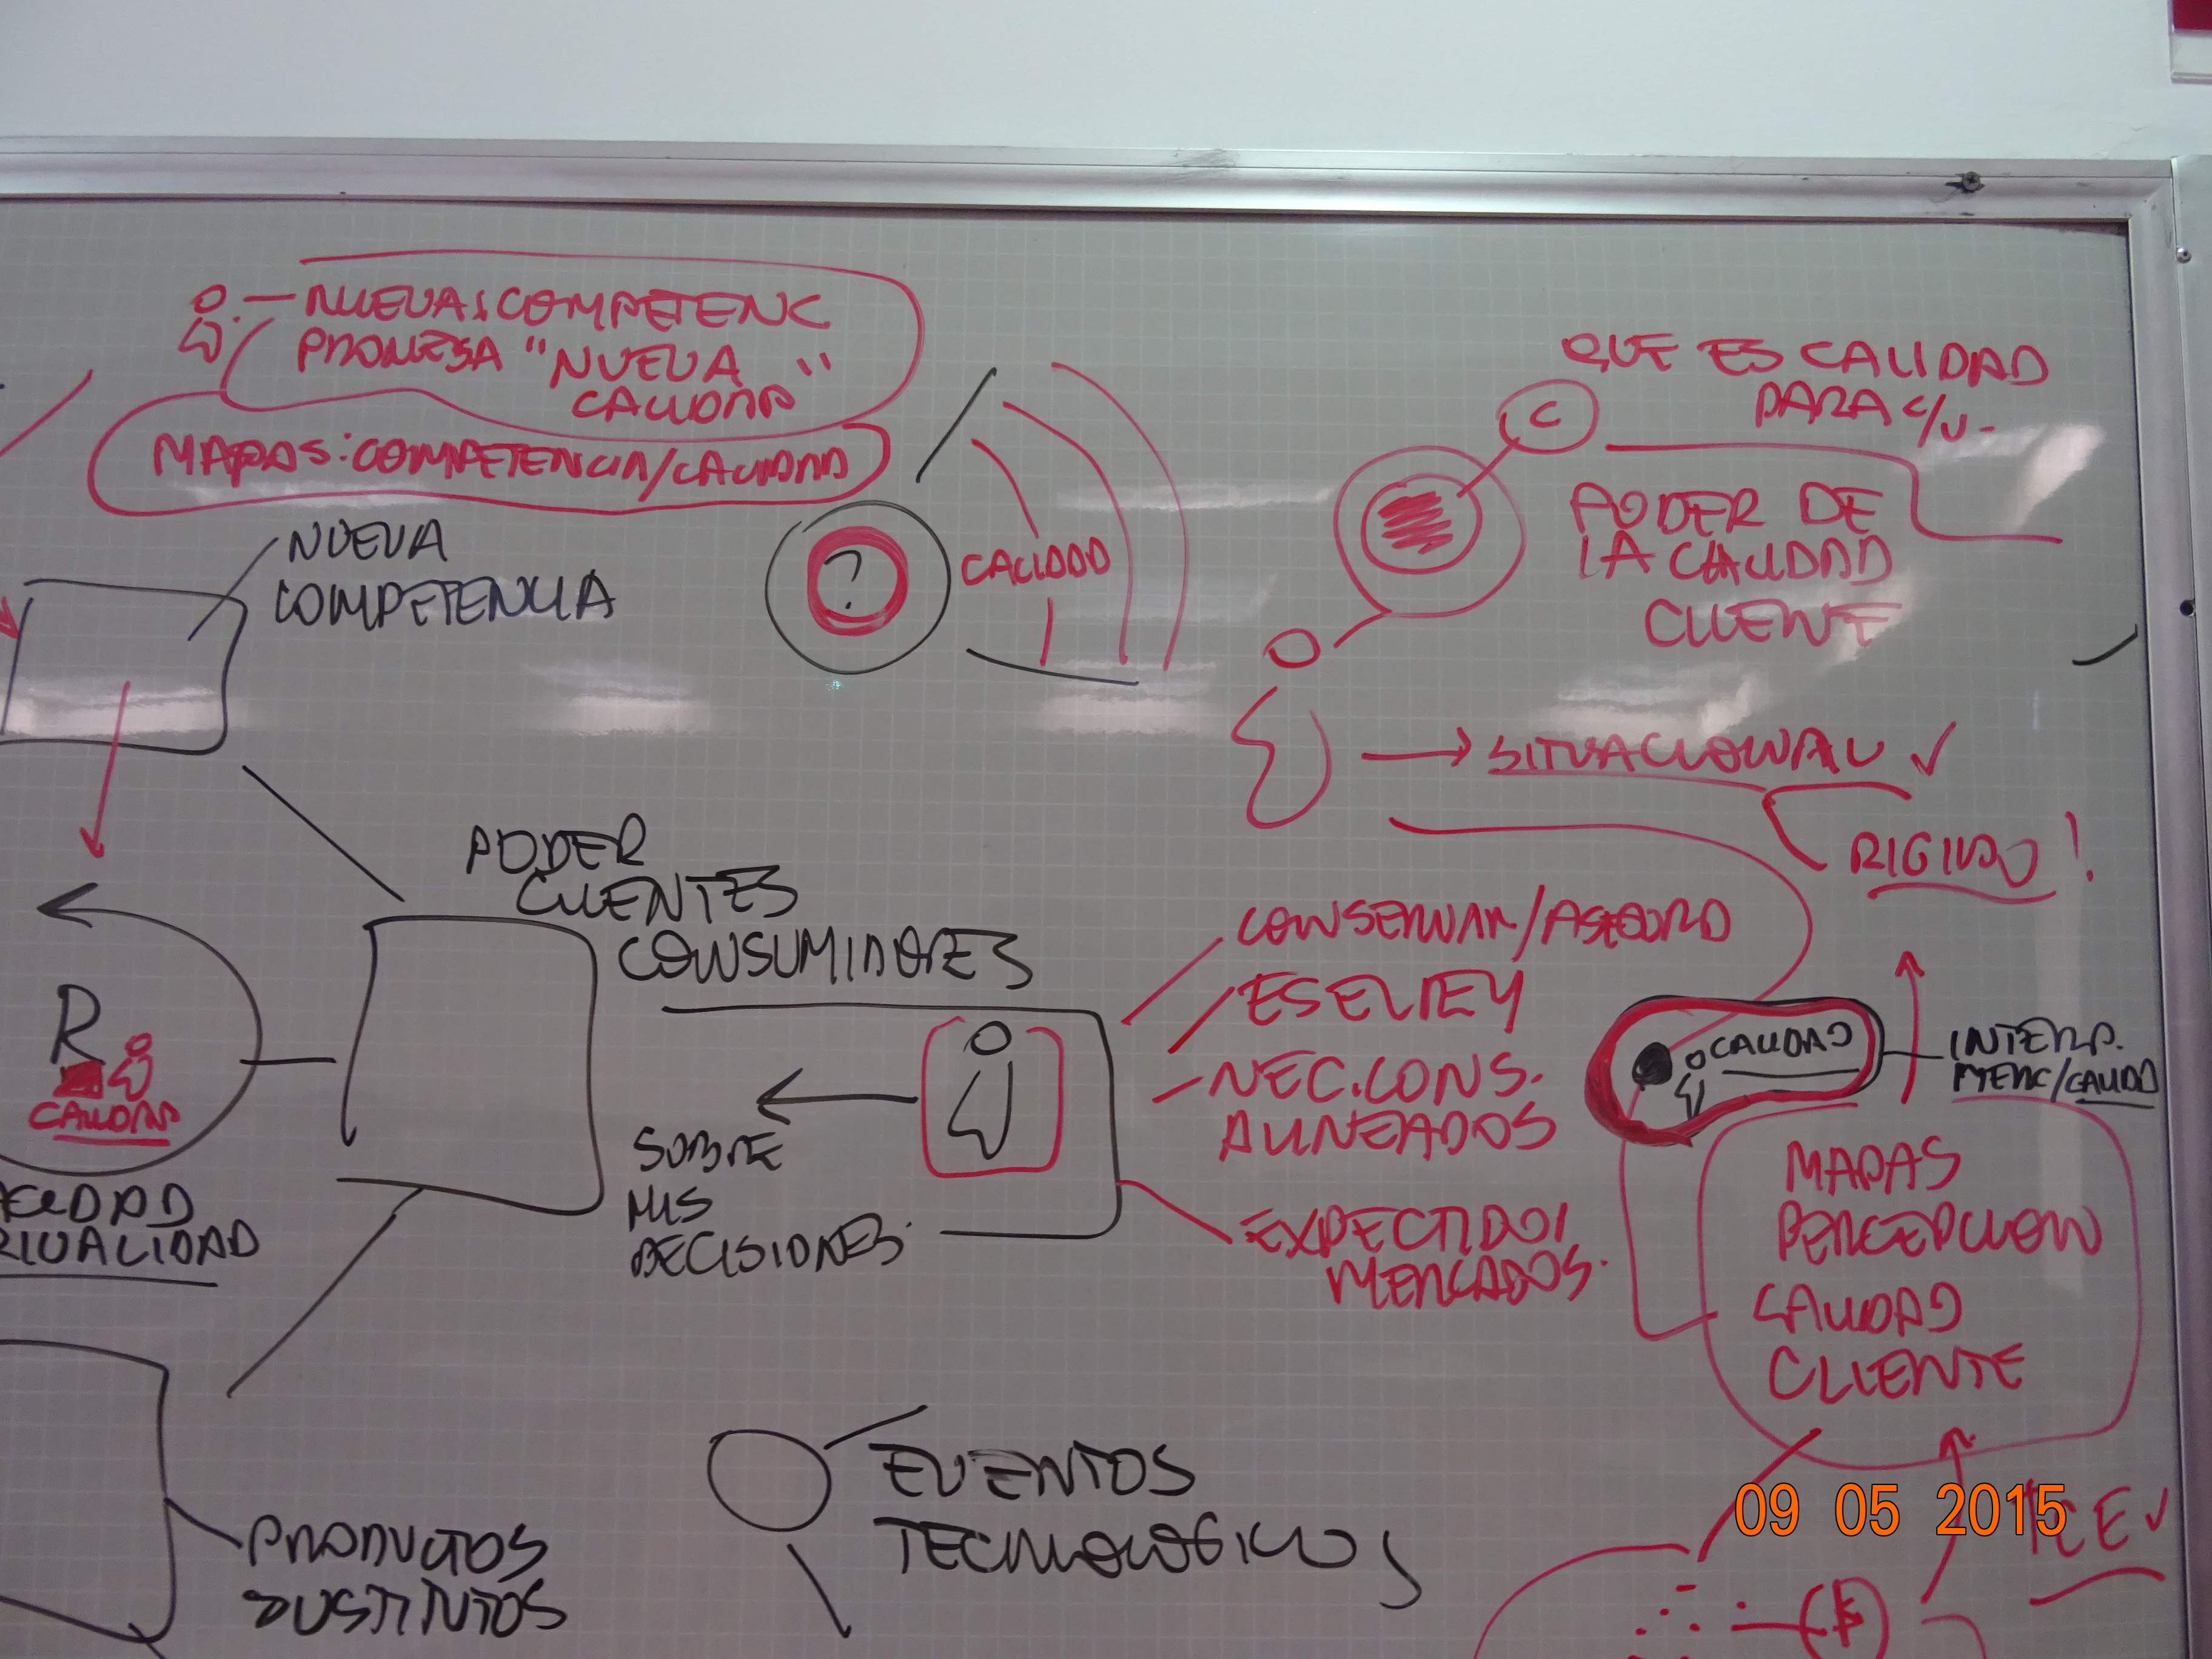 NUEVA: COMPETENC
PROMESA "NUEVA
CALIDAD"
MAPAS: COMPETENCIA/CALIDAD
NUEVA
COMPETENCIA
?
CALIDAD
QUE ES CALIDAD
PARA C/U-
C
PODER DE
LA CALIDAD
CLIENTE
SITUACIONAL ✓
RIGIDO!
PODER
CLIENTES
CONSUMIDORES
SOBRE
MIS
DECISIONES:
CONSERVAR/
ES EL REY
NEC. CONS.
ALINEADOS
MERCADOS.
CALIDAD
INTERP.
MERC/CALIDD
MAPAS
PERCEPCION
CALIDAD
CLIENTE
R
CALIDAD
RIVALIDAD
PRODUCTOS
SUSTITUTOS
EVENTOS
TECNOLOGICOS
09 05 2015